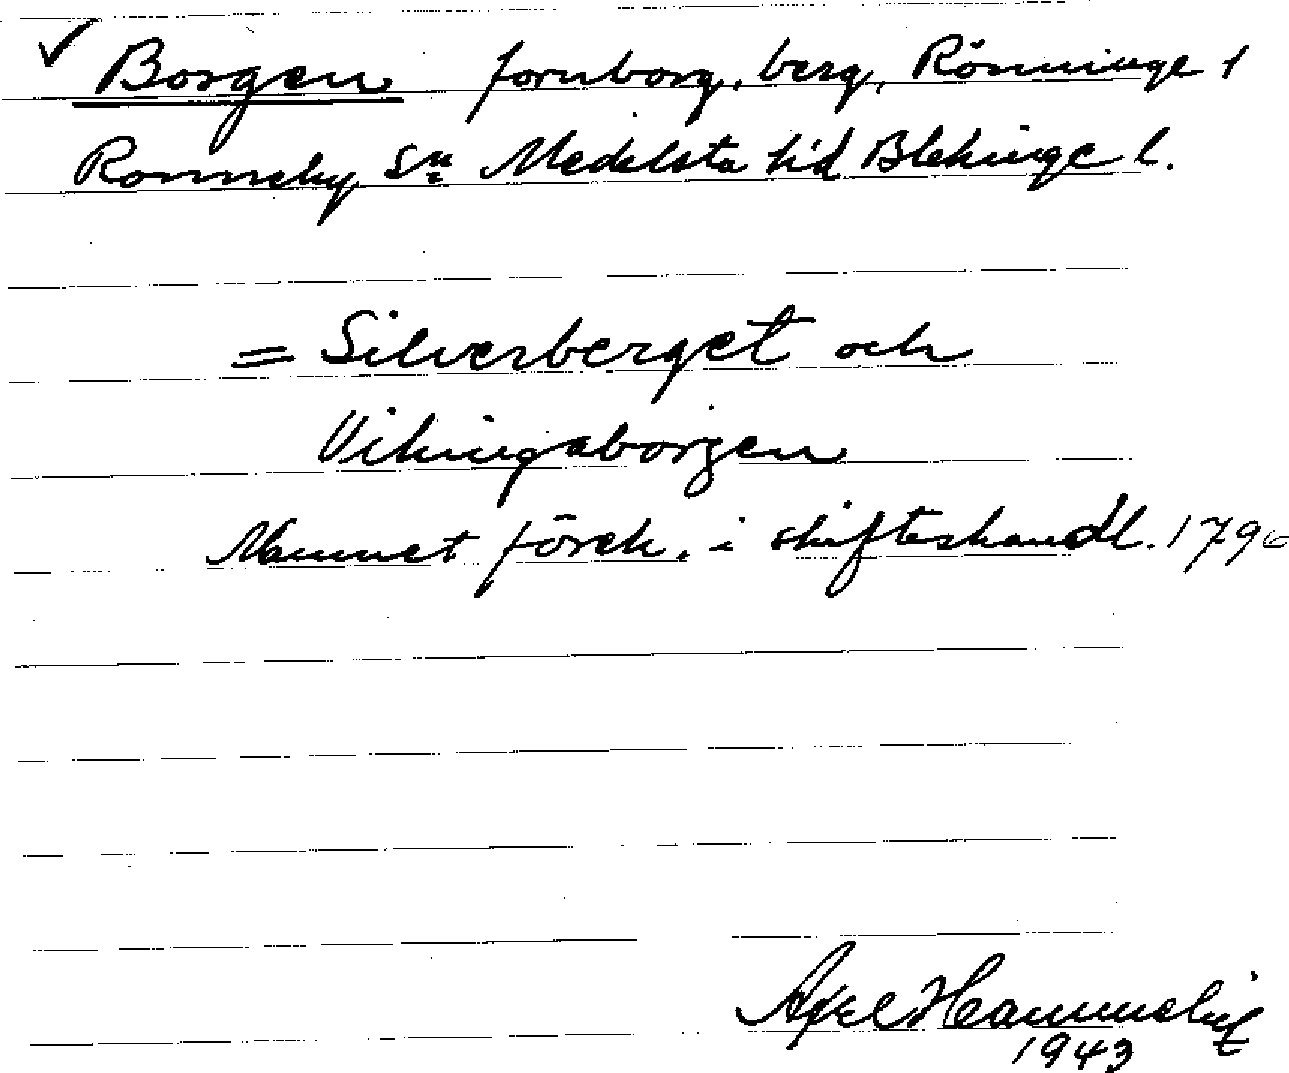 ✓ Borgen fornborg, berg, Rönninge 1
Ronneby Sn Medelsta hd Blekinge l.
= Silverberget och
Vikingaborgen
Namnet förek. i skifteshandl. 1796
Axel Hammelij
1943